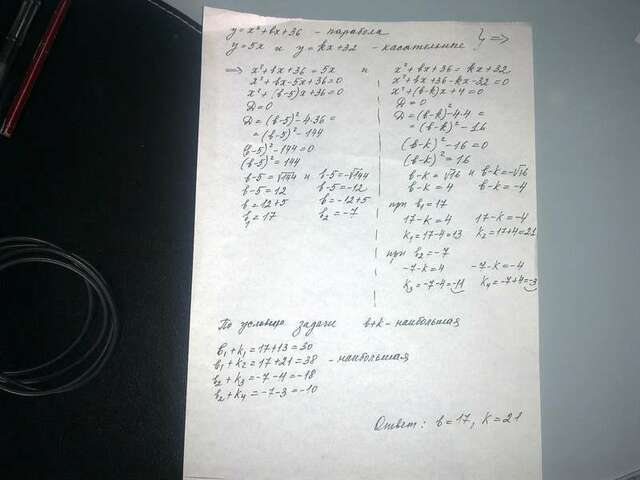 y = x² + bx + 36 - парабола
y = 5x и y = kx + 32 - касательные } ⇒
⇒ x² + bx + 36 = 5x и
x² + bx - 5x + 36 = 0
x² + (b-5)x + 36 = 0
D = 0
D = (b-5)² - 4·36 =
= (b-5)² - 144
(b-5)² - 144 = 0
(b-5)² = 144
b-5 = √144 и b-5 = -√144
b-5 = 12 b-5 = -12
b = 12+5 b = -12+5
b₁ = 17 b₂ = -7
x² + bx + 36 = kx + 32
x² + bx + 36 - kx - 32 = 0
x² + (b-k)x + 4 = 0
D = 0
D = (b-k)² - 4·4 =
= (b-k)² - 16
(b-k)² - 16 = 0
(b-k)² = 16
b-k = √16 и b-k = -√16
b-k = 4 b-k = -4
при b₁ = 17
17-k = 4 17-k = -4
k₁ = 17-4 = 13 k₂ = 17+4 = 21
при b₂ = -7
-7-k = 4 -7-k = -4
k₃ = -7-4 = -11 k₄ = -7+4 = -3
По условию задачи b+k - наибольшая
b₁ + k₁ = 17+13 = 30
b₁ + k₂ = 17+21 = 38 - наибольшая
b₂ + k₃ = -7-11 = -18
b₂ + k₄ = -7-3 = -10
Ответ: b = 17, k = 21